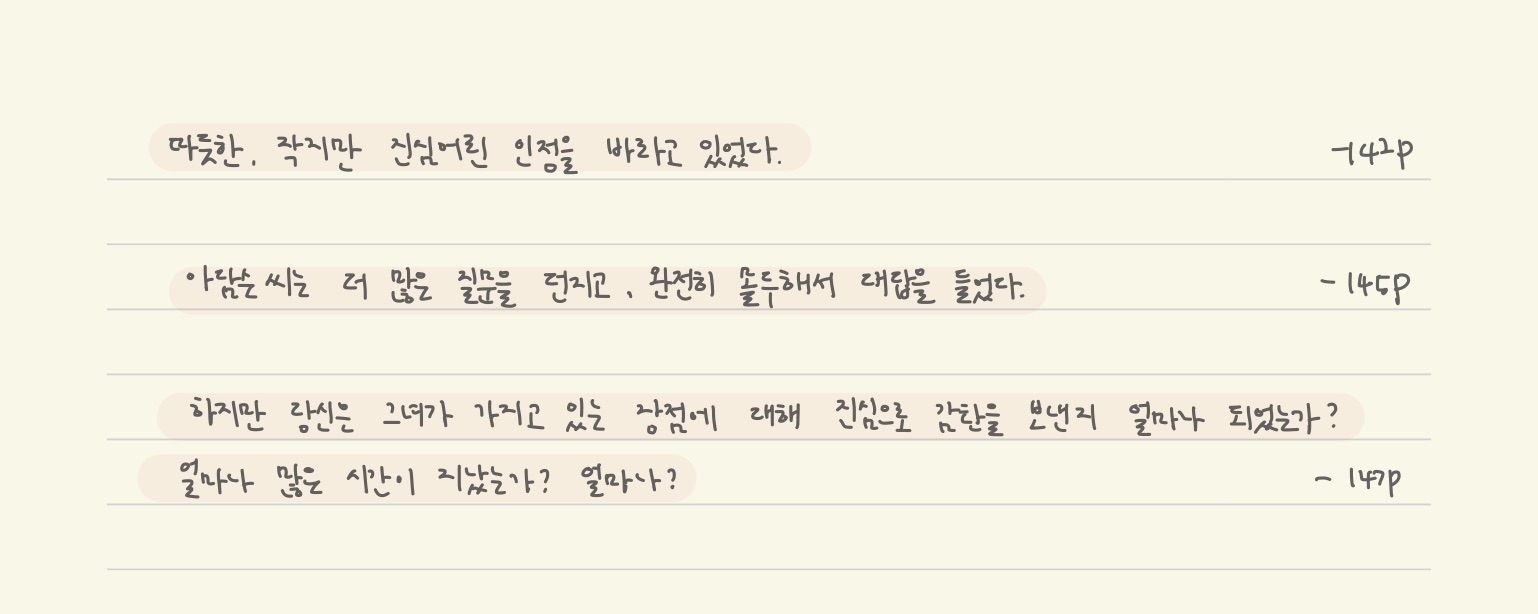 따뜻한, 작지만 진심어린 인정을 바라고 있었다. -142p
아담슨 씨는 더 많은 질문을 던지고, 완전히 몰두해서 대답을 들었다. - 145p
하지만 당신은 그녀가 가지고 있는 장점에 대해 진심으로 감탄을 보낸지 얼마나 되었는가?
얼마나 많은 시간이 지났는가? 얼마나? - 147p